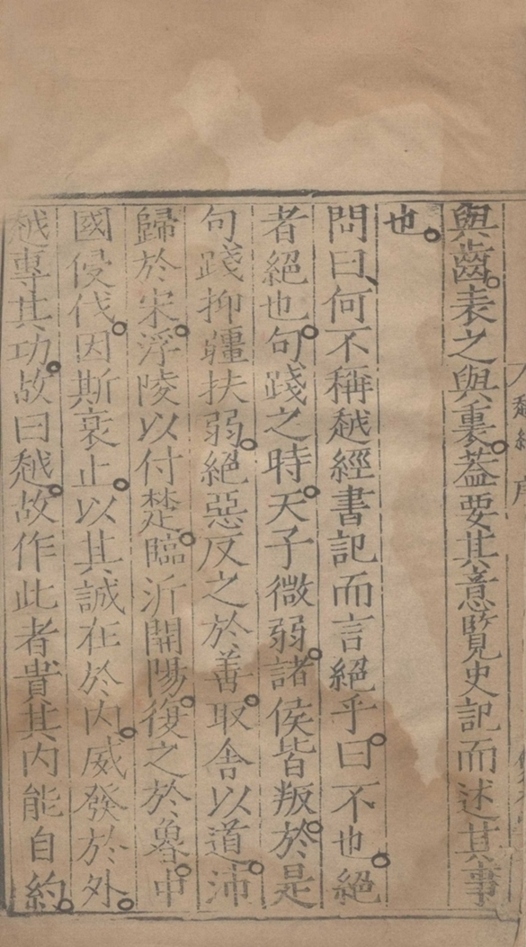 與齒表之與裏蓋要其意覧史記而述其事
也
問曰何不稱越經書記而言絕乎曰不也絕
者絕也句踐之時天子微弱諸侯皆叛於是
句踐抑疆扶弱絕惡反之於善取舎以道沛
歸於宋浮陵以付楚臨沂開陽復之於魯中
國侵伐因斯衰止以其誠在於内威發於外
越專其功故曰越故作此者貴其内能自約